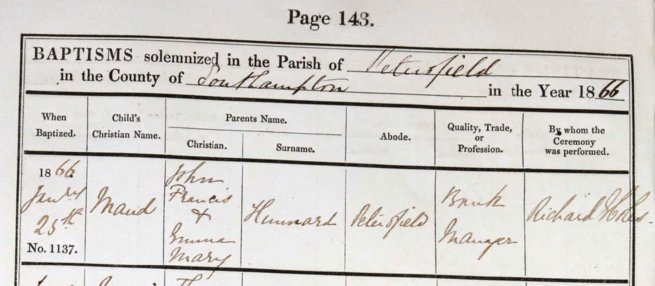 Page 143.
BAPTISMS solemnized in the Parish of Petersfield
in the County of Southampton in the Year 1866
When Baptized. Child's Christian Name. Parents Name. Abode. Quality, Trade, or Profession. By whom the Ceremony was performed.
Christian. Surname.
1866
Jany
25th
No. 1137.
Maud
John
Francis
&
Emma
Mary
Hunnard
Petersfield
Bank
Manager
Richard